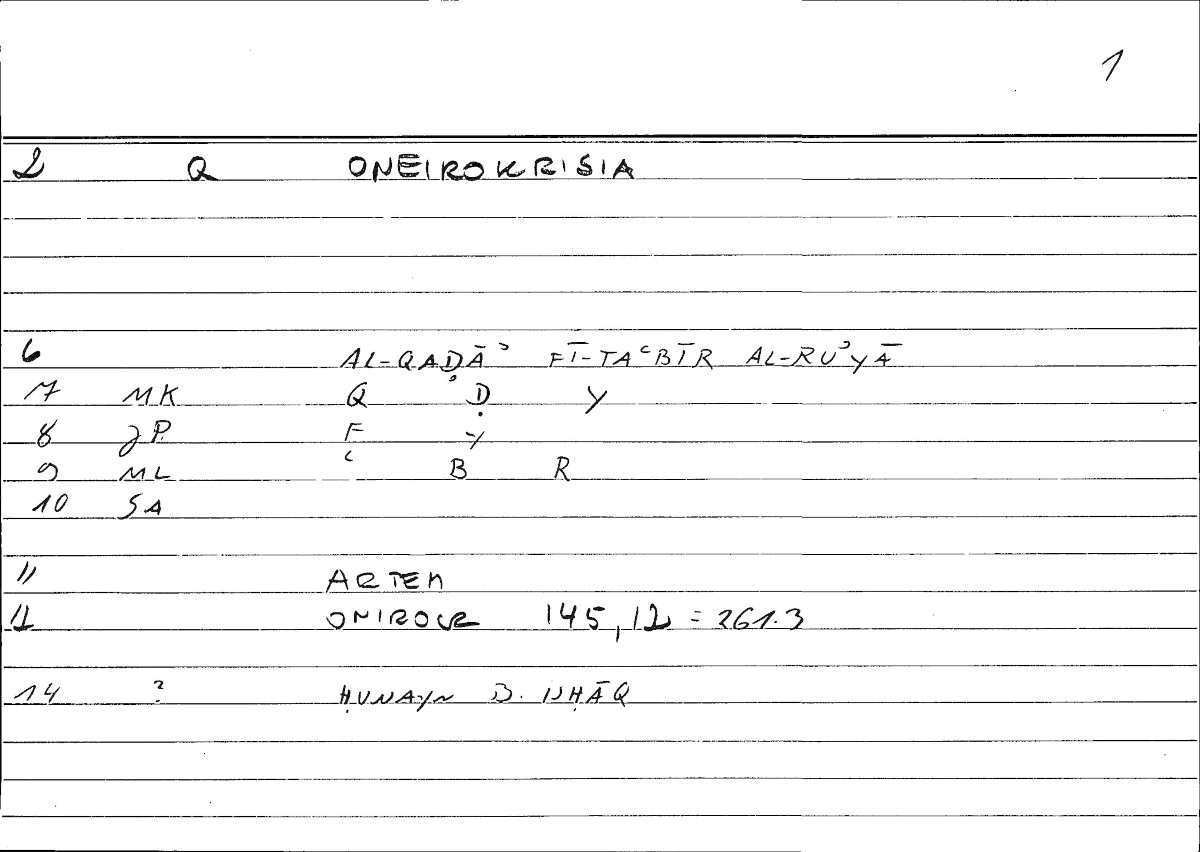 1
2 Q ONEIROKRISIA
6 AL-QAḌĀʾ FĪ-TAʿBĪR AL-RUʾYĀ
7 MK Q Ḍ Y
8 JP. F Y
9 ML ʿ B R
10 SA
11 ARTEM
12 ONIROCR 145,12 = 261.3
14 ? ḤUNAYN B. ISḤĀQ